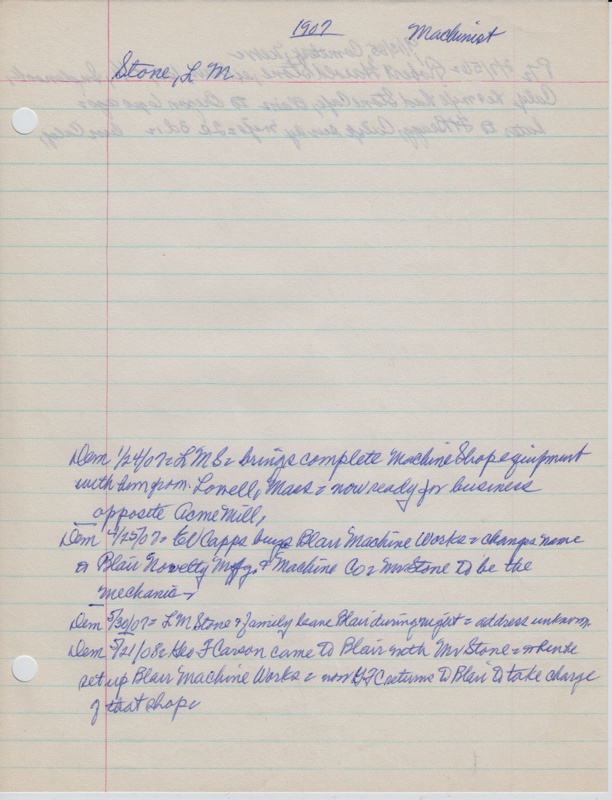 1907 Machinist
Stone, L M
Dem 1/24/07 = L M S = brings complete Machine Shop equipment
with him from Lowell, Mass = now ready for business
opposite Acme Mill,
Dem 4/25/07 = Ed Capps buys Blair Machine Works = changes name
to Blair Novelty Mfg. & Machine Co = Mr Stone to be the
mechanic,
Dem 5/30/07 = L M Stone & family leave Blair during night = address unknown.
Dem 5/21/08 = Geo F Carson came to Blair with Mr Stone =
set up Blair Machine Works = now GFC returns to Blair to take charge
of that shop